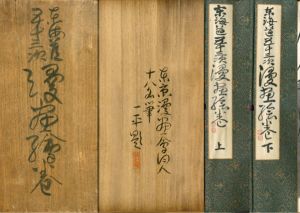 東海道
五十三次
漫画絵巻
東京漫画會同人
十八名筆
一平題
東海道五十三次漫画絵巻 上
東海道五十三次漫画絵巻 下